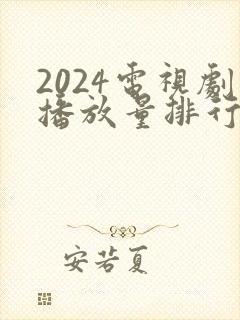 2024電視劇
播放量排行
安若夏